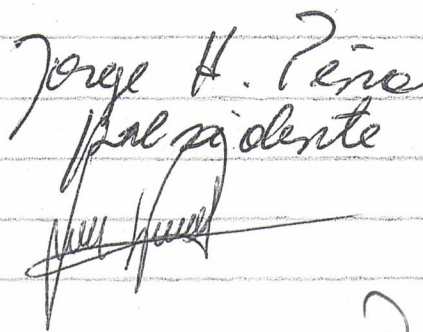 Jorge H. Peña
presidente